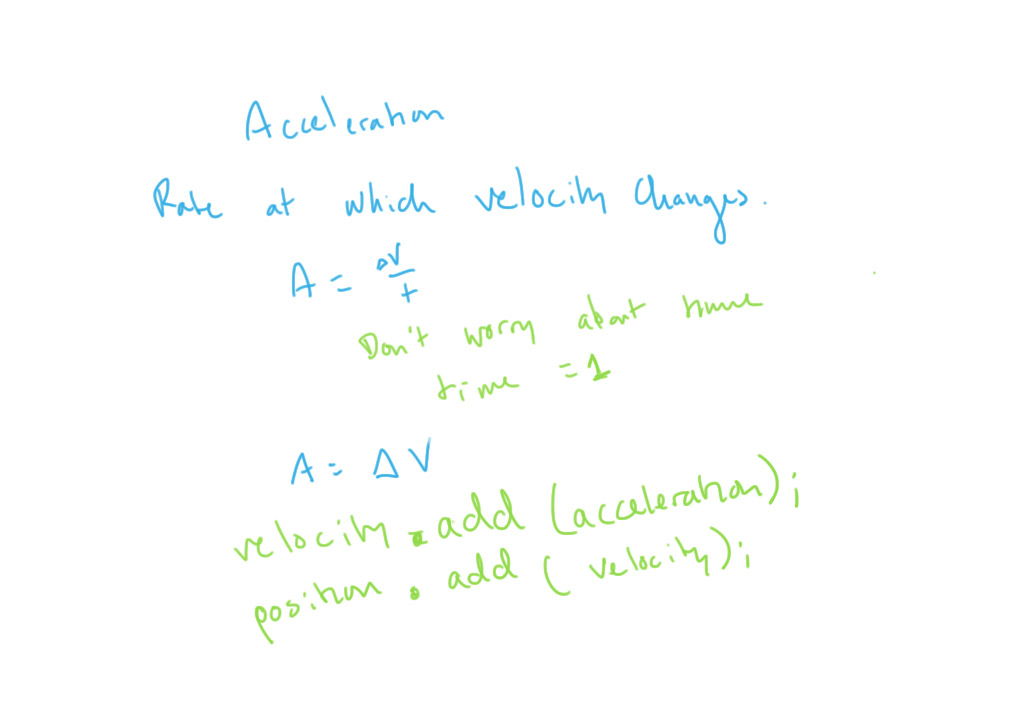 Acceleration
Rate at which velocity changes.
A = ΔV/t
Don't worry about time
time = 1
A = ΔV
velocity.add(acceleration);
position.add(velocity);